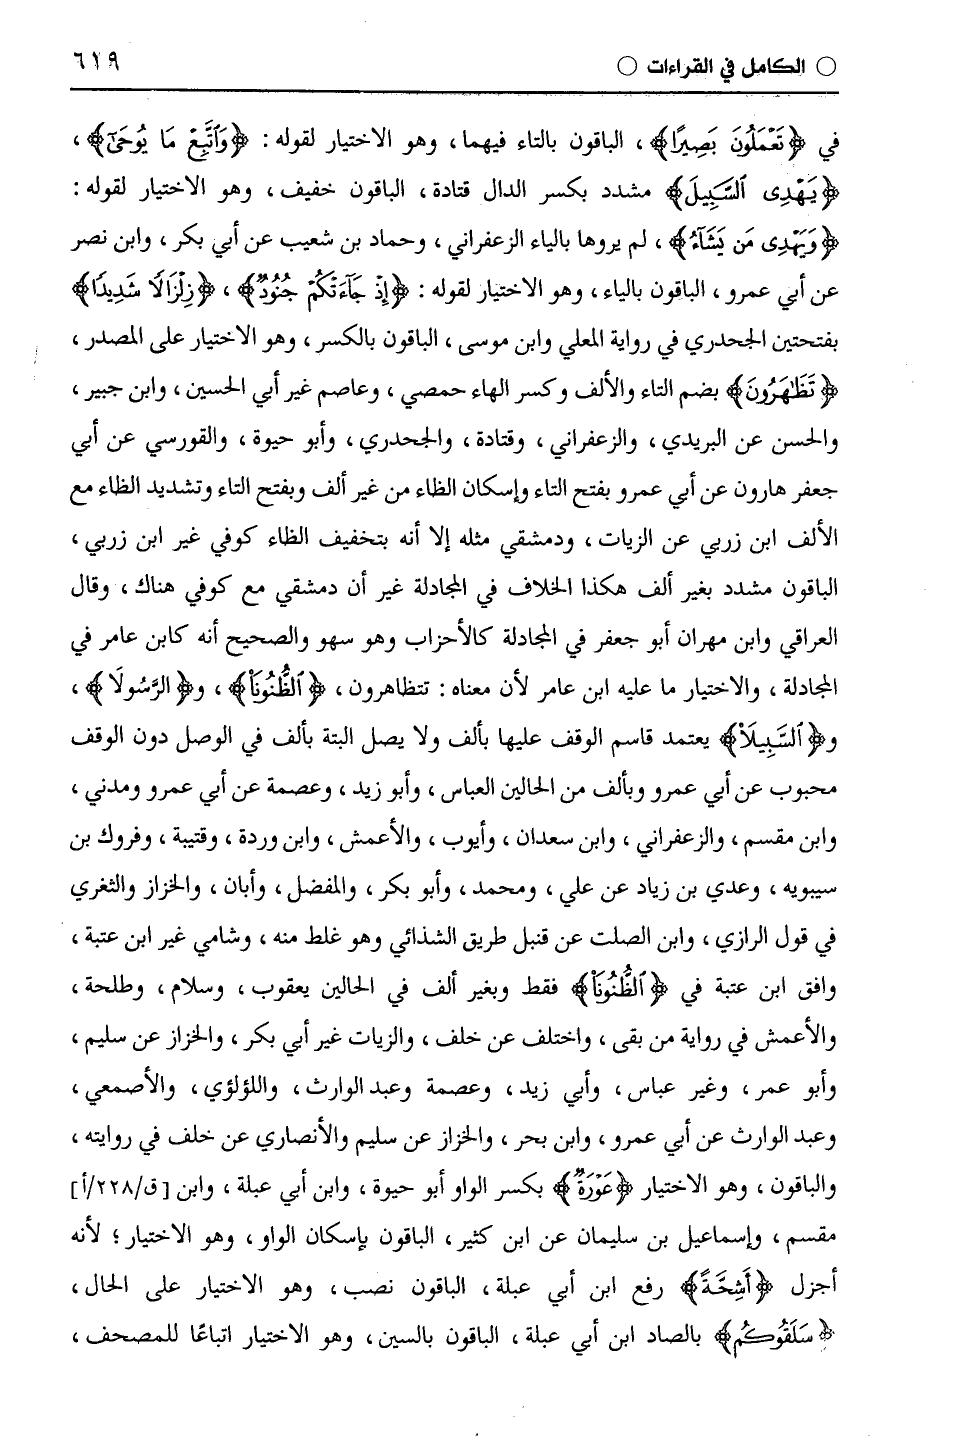 ○ الكامل في القراءات ○ ٦١٩
في ﴿تَعْمَلُونَ بَصِيرًا﴾ ، الباقون بالتاء فيهما، وهو الاختيار لقوله : ﴿وَاتَّبِعْ مَا يُوحَىٰ﴾ ،
﴿يَهْدِى ٱلسَّبِيلَ﴾ مشدد بكسر الدال قتادة، الباقون خفيف، وهو الاختيار لقوله :
﴿وَيَهْدِى مَن يَشَآءُ﴾ ، لم يروها بالياء الزعفراني، وحماد بن شعيب عن أبي بكر، وابن نصر
عن أبي عمرو، الباقون بالياء، وهو الاختيار لقوله : ﴿إِذْ جَآءَتْكُمْ جُنُودٌ﴾ ، ﴿زِلْزَالًا شَدِيدًا﴾
بفتحتين الجحدري في رواية المعلي وابن موسى، الباقون بالكسر، وهو الاختيار على المصدر،
﴿تَظَٰهَرُونَ﴾ بضم التاء والألف وكسر الهاء حمصي، وعاصم غير أبي الحسين، وابن جبير،
والحسن عن البريدي، والزعفراني، وقتادة، والجحدري، وأبو حيوة، والقورسي عن أبي
جعفر هارون عن أبي عمرو بفتح التاء وإسكان الظاء من غير ألف وبفتح التاء وتشديد الظاء مع
الألف ابن زربي عن الزيات، ودمشقي مثله إلا أنه بتخفيف الظاء كوفي غير ابن زربي،
الباقون مشدد بغير ألف هكذا الخلاف في المجادلة غير أن دمشقي مع كوفي هناك، وقال
العراقي وابن مهران أبو جعفر في المجادلة كالأحزاب وهو سهو والصحيح أنه كابن عامر في
المجادلة، والاختيار ما عليه ابن عامر لأن معناه : تتظاهرون، ﴿ٱلظُّنُونَا۠﴾ ، و﴿الرَّسُولَا﴾ ،
و﴿ٱلسَّبِيلَا۠﴾ يعتمد قاسم الوقف عليها بألف ولا يصل البتة بألف في الوصل دون الوقف
محبوب عن أبي عمرو وبألف من الحالين العباس، وأبو زيد، وعصمة عن أبي عمرو ومدني،
وابن مقسم، والزعفراني، وابن سعدان، وأيوب، والأعمش، وابن وردة، وقتيبة، وفروك بن
سيبويه، وعدي بن زياد عن علي، ومحمد، وأبو بكر، والمفضل، وأبان، والخزاز والثغري
في قول الرازي، وابن الصلت عن قنبل طريق الشذائي وهو غلط منه، وشامي غير ابن عتبة،
وافق ابن عتبة في ﴿ٱلظُّنُونَا۠﴾ فقط وبغير ألف في الحالين يعقوب، وسلام، وطلحة،
والأعمش في رواية من بقى، واختلف عن خلف، والزيات غير أبي بكر، والخزاز عن سليم،
وأبو عمر، وغير عباس، وأبي زيد، وعصمة وعبد الوارث، واللؤلؤي، والأصمعي،
وعبد الوارث عن أبي عمرو، وابن بحر، والخزاز عن سليم والأنصاري عن خلف في روايته،
والباقون، وهو الاختيار ﴿عَوْرَةٌ﴾ بكسر الواو أبو حيوة، وابن أبي عبلة، وابن [ق/٢٢٨/أ]
مقسم، وإسماعيل بن سليمان عن ابن كثير، الباقون بإسكان الواو، وهو الاختيار؛ لأنه
أجزل ﴿أَشِحَّةً﴾ رفع ابن أبي عبلة، الباقون نصب، وهو الاختيار على الحال،
﴿سَلَقُوكُم﴾ بالصاد ابن أبي عبلة، الباقون بالسين، وهو الاختيار اتباعًا للمصحف،